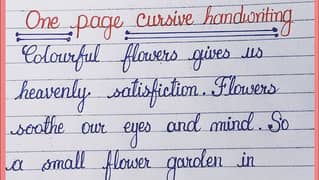 One page cursive handwriting
Colourful flowers gives us
heavenly satisfiction. Flowers
soothe our eyes and mind. So
a small flower garden in